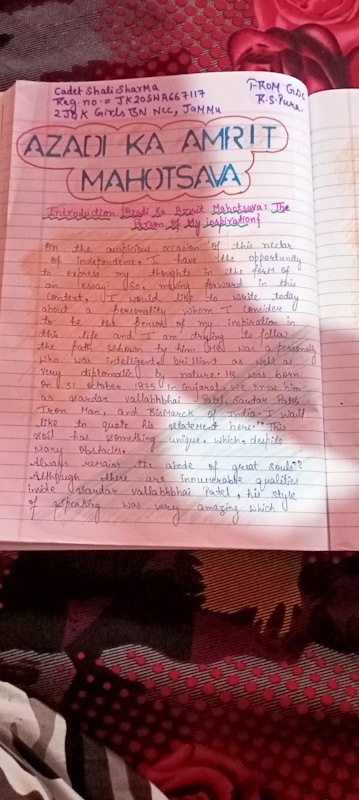 Cadet Shali Sharma
Reg. no := JK20SWA667117
2J&K Girls BN Ncc, JaMMu
FROM GDC
R.S.Pura.
AZADI KA AMRIT
MAHOTSAVA
Introduction {Azadi Ka Amrit Mahotsava: The
Person of My inspiration}
On the auspicious occasion of this nectar
of independence, I have the opportunity
to express my thoughts in the form of
an essay. So, moving forward in this
context, I would like to write today
about a personality whom I consider
to be the person of my inspiration in
this life and I am trying to follow
the path shown by him. He was a personality
who was intelligent, brilliant as well as
very diplomatic by nature. He was born
On 31 October 1875 in Gujarat. We know him
as Sardar vallabhbhai Patel, Sardar Patel,
Iron Man, and Bismarck of India. I would
like to quote his statement here "This
soil has something unique, which despite
Many obstacles.
Always remains the abode of great souls".
Although there are innumerable qualities
inside Sardar vallabhbhai Patel, his style
of speaking was very amazing which